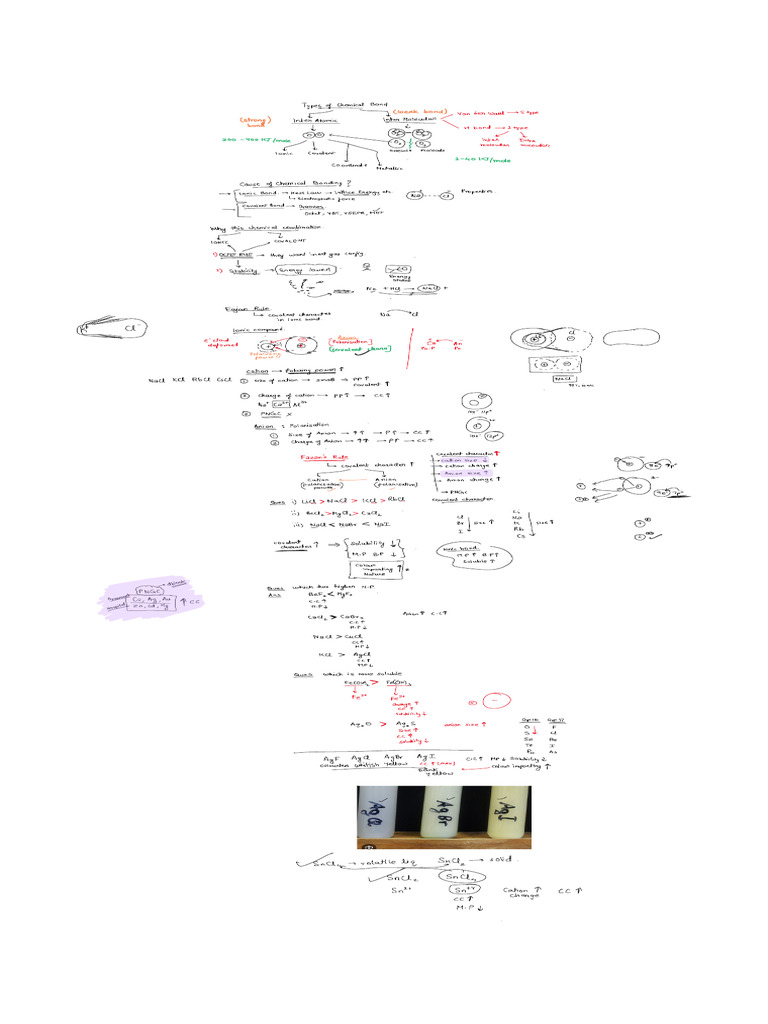 Types of Chemical Bond
(strong) bond
Inter Atomic
(weak bond)
Inter Molecular
Van der Waal → 5 type
H bond → 2 type
Inter molecular
Intra molecular
200 - 400 KJ/mole
O₂ O₂
molecule
Ionic
Covalent
Coordinate
Metallic
2-40 KJ/mole
Cause of Chemical Bonding ?
Ionic Bond → Lattice Energy etc.
→ Electrostatic force
Na Cl
Properties
Covalent Bond →
Octet, VBT, VSEPR, MOT
Why this chemical combination
IONIC
COVALENT
1) OCTET RULE → they want inert gas config.
2) Stability → Energy lowers
Energy
Na + → NaCl +
Fajan Rule
→ covalent character in ionic bond
Na Cl
Ionic compound
e⁻ cloud
Polarising power
Anion Polarisation
(covalent char)
Cl⁻
Cl
NaCl
Cation → Polarising power ↑
NaCl KCl RbCl CsCl
① size of cation → small → PP ↑
covalent ↑
② charge of cation → PP ↑ → CC ↑
Na⁺ Ca²⁺ Al³⁺
③ PNGC ×
Anion : Polarisation
① Size of Anion → ↑↑ → P↑ → CC ↑
② Charge of Anion → ↑↑ → P↑ → CC ↑
10e⁻ 11p⁺
10e⁻ 12p⁺
Fajan's Rule
→ covalent character ↑
Cation
(polarisation power)
Anion
(polarisation)
Covalent character ↑
→ cation size ↓
→ cation charge ↑
→ Anion size ↑
→ Anion charge ↑
→ PNGC
covalent character
Ques i) LiCl > NaCl > KCl > RbCl
ii) BeCl₂ > MgCl₂ > CaCl₂
iii) NaCl < NaBr < NaI
Cl
Br
I
size ↑
Li
Na
K
Rb
Cs
size ↑
covalent character ↑ →
Solubility ↓
M.P B.P ↓
Colour imparting Nature ↑
Ionic bond
M.P ↑ B.P ↑
Soluble ↑
PNGC
Cu, Ag, Au
Zn, Cd, Hg
↑ CC
Ques which has higher M.P.
Ans BeF₂ < MgF₂
C.C ↑
M.P ↓
CaCl₂ > CaBr₂
C.C ↑
M.P ↓
Anion ↑ C.C ↑
NaCl > CuCl
CC ↑
MP ↓
KCl > AgCl
CC ↑
MP ↓
Ques which is more soluble
Fe(OH)₂ > Fe(OH)₃
Fe²⁺
Fe³⁺
charge ↑
CC ↑
solubility ↓
Ag₂O > Ag₂S
size ↑
CC ↑
solubility ↓
anion size ↑
Gp 16 Gp 17
O F
S Cl
Se Br
Te I
Po At
AgF AgCl AgBr AgI
colourless whitish yellow
CC ↑ (max)
yellow
C.C ↑ MP ↓ Solubility ↓
→ colour imparting ↑
AgCl
AgBr
AgI
SnCl₄ → volatile liq
SnCl₂ → solid
SnCl₂
SnCl₄
Sn²⁺
Sn⁴⁺
CC ↑
M.P ↓
Cation ↑
charge
CC ↑